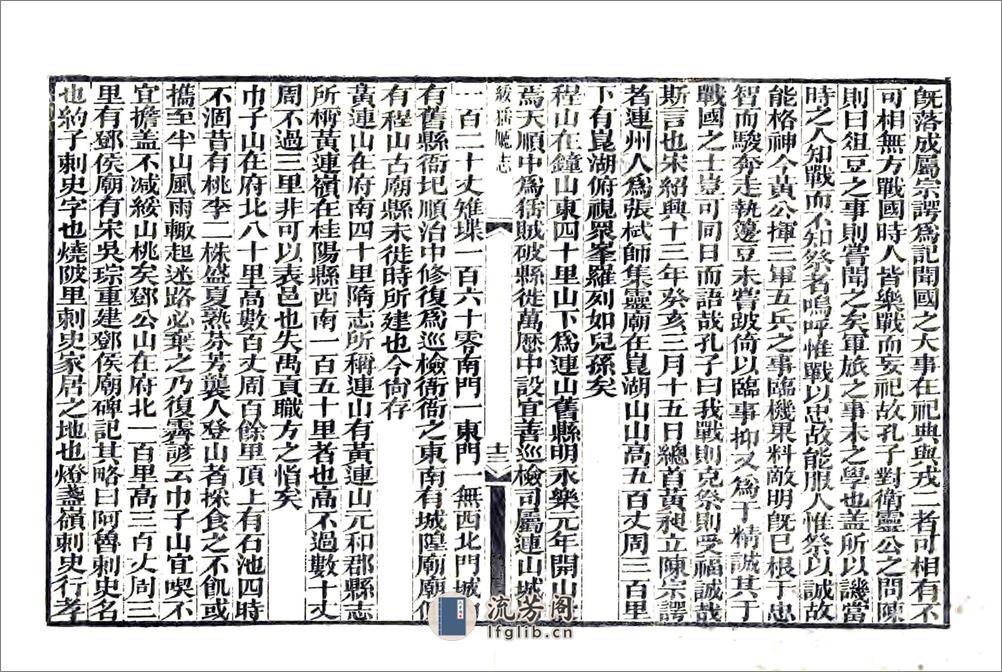 旣落成屬宗諤爲記聞國之大事在祀典與戎二者可相有不
可相無方戰國時人皆樂戰而妄祀故孔子對衞靈公之問陳
則曰俎豆之事則嘗聞之矣軍旅之事未之學也盖所以譏當
時之人知戰而不知祭者嗚呼惟戰以忠故能服人惟祭以誠故
能格神今黃公揮三軍五兵之事臨機果料敵明旣已根于忠
智而駿奔走執籩豆未嘗跛倚以臨事抑又爲于精誠其于
戰國之士豈可同日而語哉孔子曰我戰則克祭則受福誠哉
斯言也宋紹興十三年癸亥三月十五日總首黃昶立陳宗諤
者連州人爲張栻師集靈廟在崑湖山山高五百丈周三百里
下有崑湖俯視眾峯羅列如兒孫矣
程山在鐘山東四十里山下爲連山舊縣明永樂元年開山
焉天順中爲猺賊破縣徙萬歷中設宜善巡檢司屬連山城
綏猺廳志
十三
一百二十丈雉堞一百六十零南門一東門一無西北門城
有舊縣衙圮順治中修復爲巡檢衙衙之東南有城隍廟廟側
有程山古廟縣未徙時所建也今尙存
黃連山在府南四十里隋志所稱連山有黃連山元和郡縣志
所稱黃連嶺在桂陽縣西南一百五十里者也高不過數十丈
周不過三里非可以表邑也失萬貢職方之恉矣
巾子山在府北八十里高數百丈周百餘里頂上有石池四時
不涸昔有桃李二株盛夏熟芬芳襲人登山者採食之不飢或
攜至半山風雨輙起迷路必棄之乃復霽諺云巾子山宜喫不
宜擔盖不减綏山桃矣鄧公山在府北一百里高三百丈周三
里有鄧侯廟有宋吳琮重建鄧侯廟碑記其略曰阿魯刺史名
也約子刺史字也燒陂里刺史家居之地也燈盞嶺刺史行孝
流芳阁
lfglib.cn